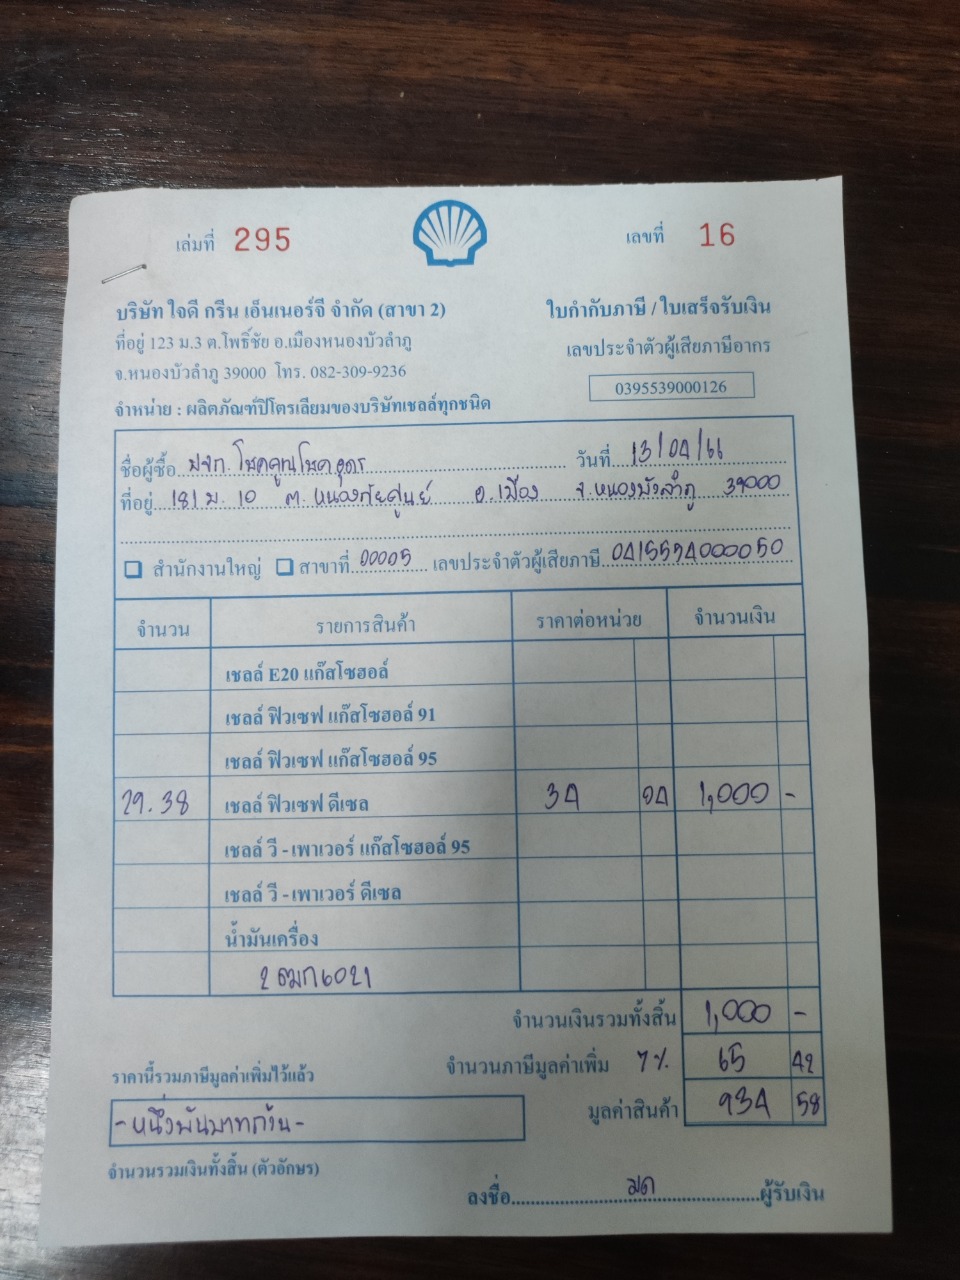 เล่มที่ 295 เลขที่ 16
บริษัท ใจดี กรีน เอ็นเนอร์จี จำกัด (สาขา 2) ใบกำกับภาษี / ใบเสร็จรับเงิน
ที่อยู่ 123 ม.3 ต.โพธิ์ชัย อ.เมืองหนองบัวลำภู เลขประจำตัวผู้เสียภาษีอากร
จ.หนองบัวลำภู 39000 โทร. 082-309-9236 0395539000126
จำหน่าย : ผลิตภัณฑ์ปิโตรเลียมของบริษัทเชลล์ทุกชนิด
ชื่อผู้ซื้อ หจก. โชคคูณโชคอุดร วันที่ 13/04/66
ที่อยู่ 181 ม. 10 ต. หนองภัยศูนย์ อ.เมือง จ.หนองบัวลำภู 39000
สำนักงานใหญ่ สาขาที่ 00005 เลขประจำตัวผู้เสียภาษี 0415554000050
จำนวน รายการสินค้า ราคาต่อหน่วย จำนวนเงิน
เชลล์ E20 แก๊สโซฮอล์
เชลล์ ฟิวเซฟ แก๊สโซฮอล์ 91
เชลล์ ฟิวเซฟ แก๊สโซฮอล์ 95
29.38 เชลล์ ฟิวเซฟ ดีเซล 34 04 1,000 -
เชลล์ วี - เพาเวอร์ แก๊สโซฮอล์ 95
เชลล์ วี - เพาเวอร์ ดีเซล
น้ำมันเครื่อง
2ฒก6021
จำนวนเงินรวมทั้งสิ้น 1,000 -
ราคานี้รวมภาษีมูลค่าเพิ่มไว้แล้ว จำนวนภาษีมูลค่าเพิ่ม 7% 65 42
-หนึ่งพันบาทถ้วน- มูลค่าสินค้า 934 58
จำนวนรวมเงินทั้งสิ้น (ตัวอักษร)
ลงชื่อ มด ผู้รับเงิน